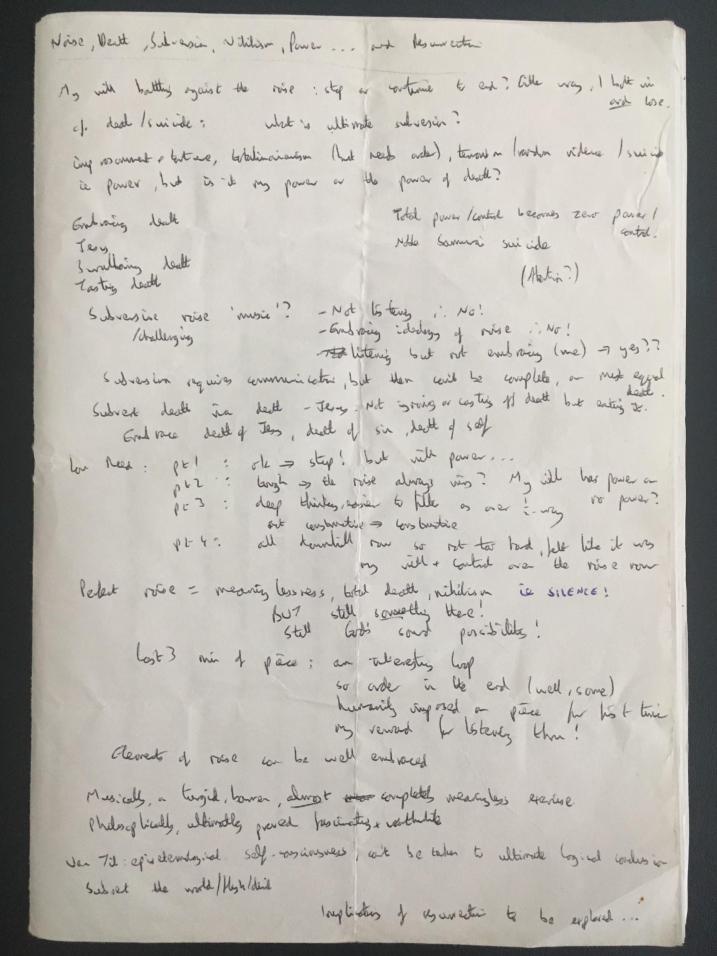 Noise, Death, Subversion, Nihilism, Power ... and Resurrection
My will battling against the noise : stop or continue to end? Either way, I both win and lose.
cf. death/suicide : what is ultimate subversion?
imprisonment + torture, totalitarianism (but needs order), terrorism / random violence / suicide
ie power, but is it my power or the power of death?
Embracing death
Jesus
Swallowing death
Tasting death
Total power/control becomes zero power/control.
Noble Samurai suicide
(Abortion?)
Subversive noise 'music'? - Not listening ∴ No!
/challenging - Embracing ideology of noise ∴ No!
- listening but not embracing (me) → yes??
Subversion requires communication, but then can't be complete, or must equal death.
Subvert death via death - Jesus. Not ignoring or casting off death but entering it.
Embrace death of Jesus, death of sin, death of self
pt 1 : ok ⇒ stop! but will power...
pt 2 : tough ⇒ the noise always wins? My will has power or no power?
pt 3 : deep thinking, easier to as over 1/2-way
not constructive ⇒ constructive
pt 4 : all downhill now so not too hard, felt like it was
my will + control over the noise now
Perfect noise = meaninglessness, total death, nihilism ie SILENCE!
BUT still something there!
Still God's sound possibilities!
Last 3 min of piece : an interesting loop
so order in the end (well, some)
humanity imposed on piece for first time
my reward for listening thru!
Elements of noise can be well embraced
Musically, a turgid, barren, almost completely meaningless exercise
Philosophically, ultimately proved fascinating + worthwhile
Van Til : epistemological self-consciousness, can't be taken to ultimate logical conclusion
Subvert the world/flesh/devil
Implications of resurrection to be explored ...